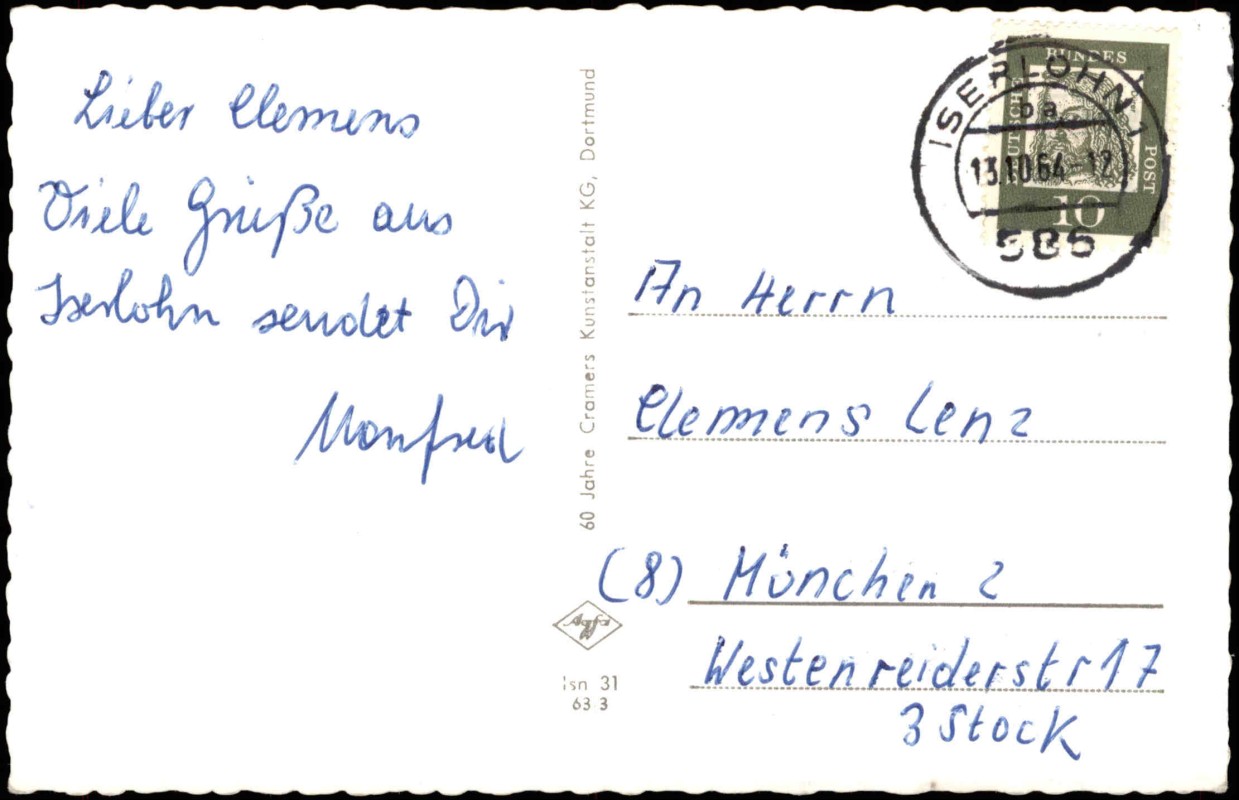 Lieber Clemens
Viele Grüße aus
Iserlohn sendet Dir
Manfred
60 Jahre Cramers Kunstanstalt KG, Dortmund
Isn 31
63 3
DEUTSCHE BUNDES POST
10
ISERLOHN 1
ba
13.10.64-12
586
An Herrn
Clemens Lenz
(8) München 2
Westenreiderstr 17
3 Stock